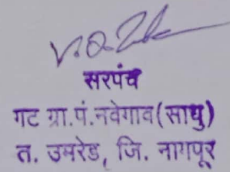 सरपंच
गट ग्रा.पं.नवेगाव(साधु)
त. उमरेड, जि. नागपूर